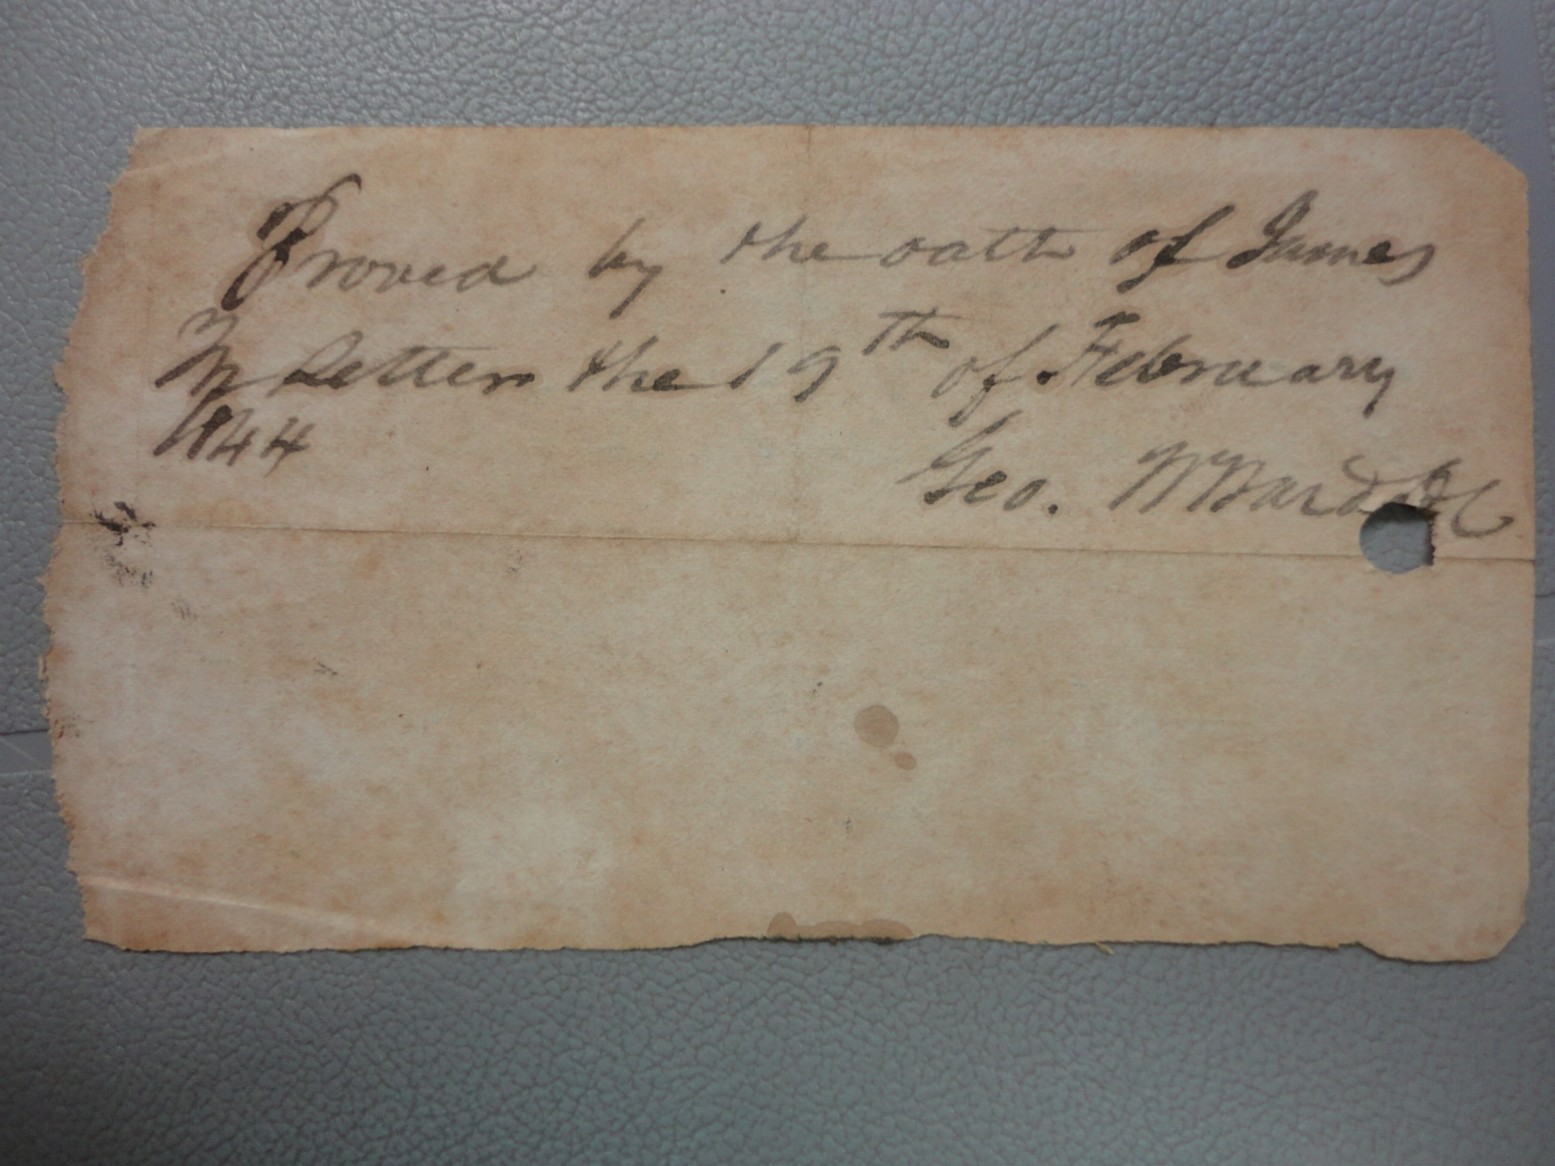 Proved by the oath of James
Letter the 19th of February
1844
Geo. W Ward